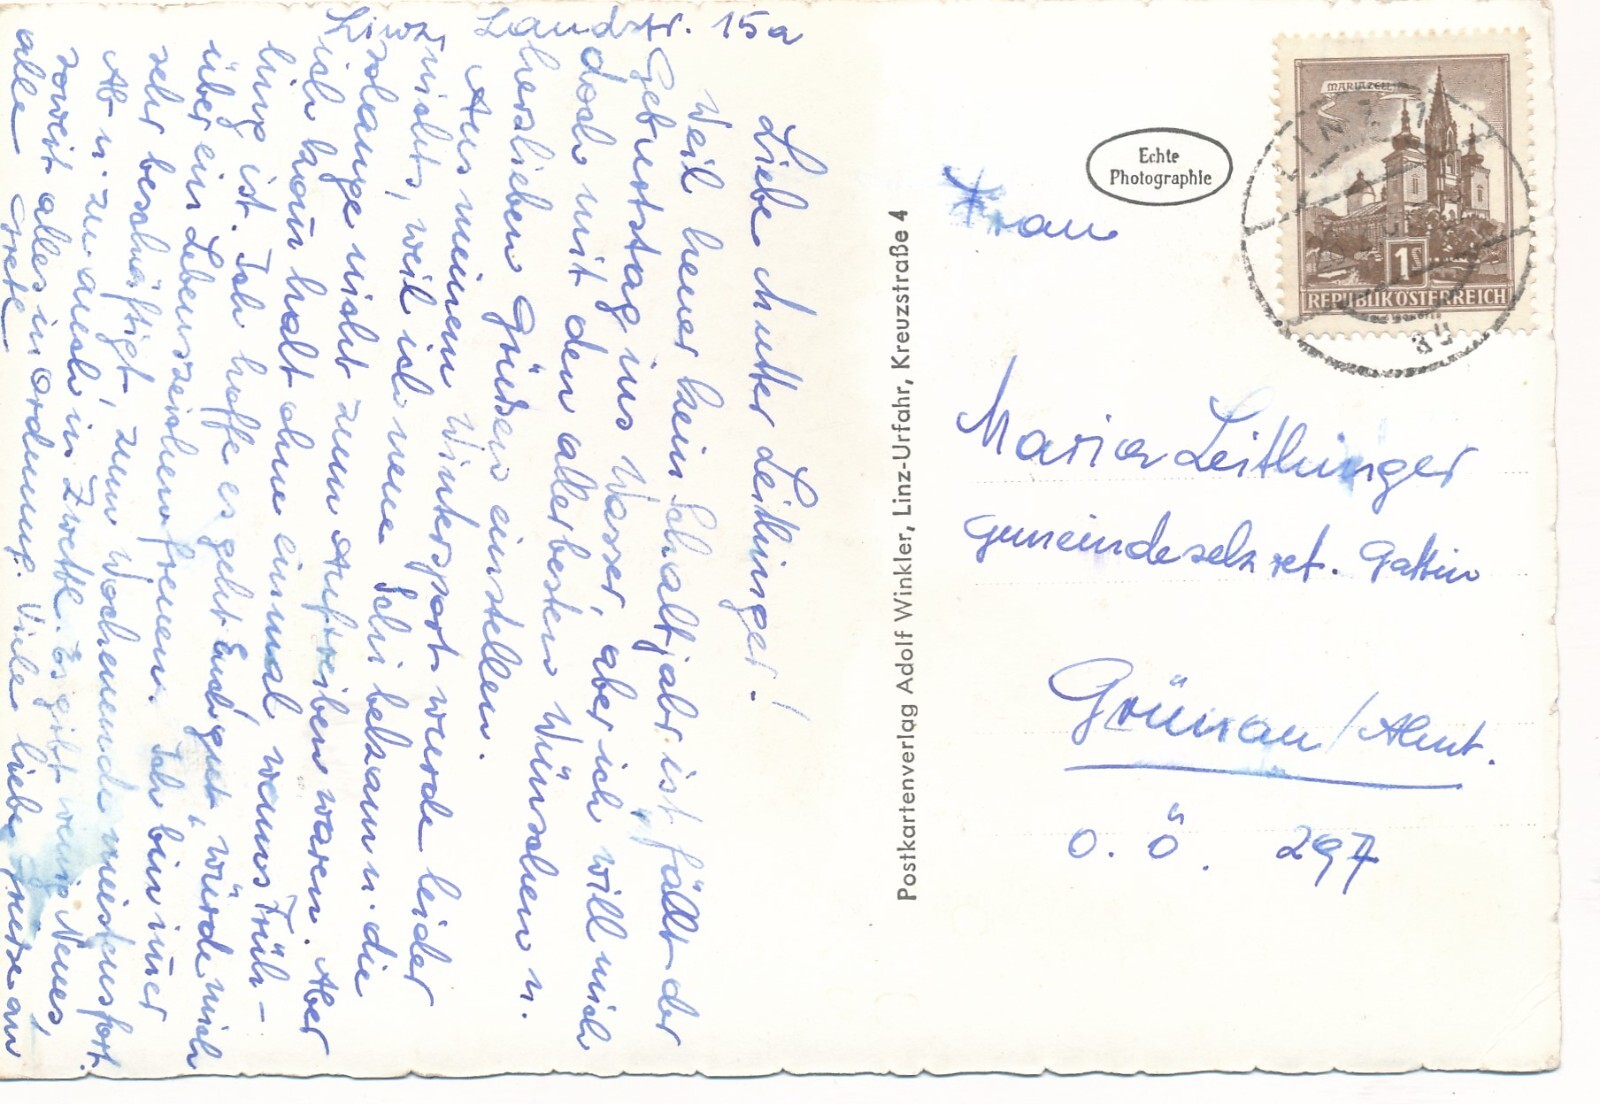 Linz, Landstr. 15a
Liebe Mutter Leithinger!
Weil heuer kein Schaltjahr ist fällt der
Geburtstag ins Wasser, aber ich will mich
doch mit den allerbesten Wünschen u.
herzlieben Grüßen einstellen.
Aus meinem Wintersport wurde leider
nichts, weil ich neue Schi bekam u. die
solange nicht zum Auftreiben waren. Aber
ich kann halt ohne einmal wenns Früh-
ling ist. Ich hoffe es geht Euch gut, würde mich
über ein Lebenszeichen freuen. Ich bin im̅er
sehr beschäftigt, zum Wochenende meistens fort.
Ab u. zu auch in Zwettl. Es gibt wenig Neues,
soweit alles in Ordnung. Viele liebe Grüsse an
alle Grete
Postkartenverlag Adolf Winkler, Linz-Urfahr, Kreuzstraße 4
Echte
Photographie
MARIAZELL
1 S
REPUBLIK ÖSTERREICH
LINZ
Frau
Maria Leithinger
Gemeindesekret. Gattin
Grünau / Almt.
O. Ö. 297